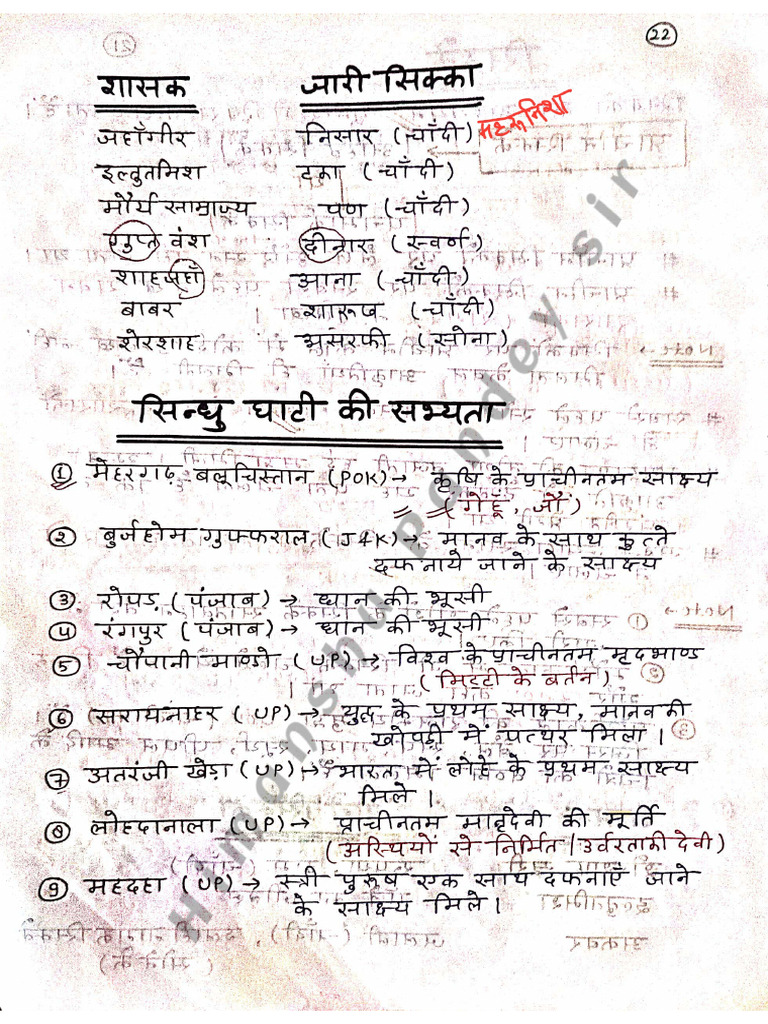 22
शासक जारी सिक्का
जहाँगीर निसार (चाँदी) महरुनिशा
इल्तुतमिश टका (चाँदी)
मौर्य साम्राज्य पण (चाँदी)
गुप्त वंश दीनार (स्वर्ण)
शाहजहाँ आना (चाँदी)
बाबर शारूख (चाँदी)
शेरशाह असरफी (सोना)
सिन्धु घाटी की सभ्यता
① मेहरगढ़ बलूचिस्तान (POK) → कृषि के प्राचीनतम साक्ष्य
(गेहूँ, जौ)
② बुर्जहोम गुफ्फराल (J&K) → मानव के साथ कुत्ते
दफनाये जाने के साक्ष्य
③ रोपड (पंजाब) → धान की भूसी
④ रंगपुर (पंजाब) → धान की भूसी
⑤ चौपानी माण्डो (UP) → विश्व के प्राचीनतम मृदभाण्ड
(मिट्टी के बर्तन)
⑥ सरायनाहर (UP) → युद्ध के प्रथम साक्ष्य, मानव की
खोपड़ी में पत्थर मिला।
⑦ अतरंजी खेड़ा (UP) → भारत में लोहे के प्रथम साक्ष्य
मिले।
⑧ लोहदानाला (UP) → प्राचीनतम मातृदेवी की मूर्ति
(अस्थियों से निर्मित / उर्वरता की देवी)
⑨ महदहा (UP) → स्त्री पुरूष एक साथ दफनाएँ जाने
के साक्ष्य मिले।
Himanshu Pandey sir